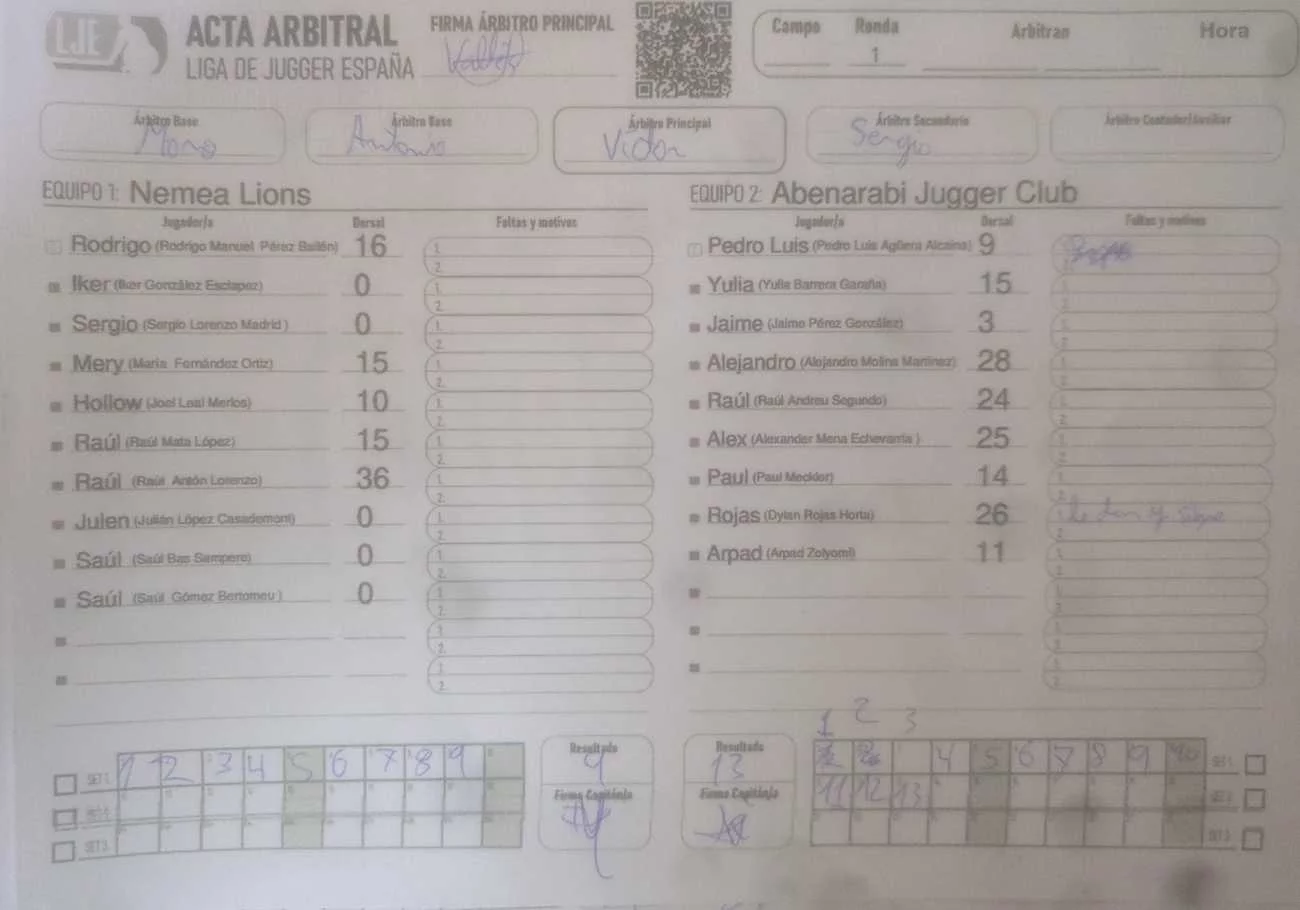 LJE
ACTA ARBITRAL
LIGA DE JUGGER ESPAÑA
FIRMA ÁRBITRO PRINCIPAL
Campo Ronda Arbitran Hora
1
Árbitro Base
Árbitro Base
Antonio
Árbitro Principal
Victor
Árbitro Secundario
Sergio
Árbitro Contador/Auxiliar
EQUIPO 1: Nemea Lions
Jugador/a Dorsal Faltas y motivos
Rodrigo (Rodrigo Manuel Pérez Bailén) 16 1. 2.
Iker (Iker González Esclapez) 0 1. 2.
Sergio (Sergio Lorenzo Madrid ) 0 1. 2.
Mery (María Fernández Ortiz) 15 1. 2.
Hollow (Joel Leal Merlos) 10 1. 2.
Raúl (Raúl Mata López) 15 1. 2.
Raúl (Raúl Antón Lorenzo) 36 1. 2.
Julen (Julián López Casademont) 0 1. 2.
Saúl (Saúl Bas Sempere) 0 1. 2.
Saúl (Saúl Gómez Bertomeu ) 0 1. 2.
1. 2.
1. 2.
EQUIPO 2: Abenarabi Jugger Club
Jugador/a Dorsal Faltas y motivos
Pedro Luis (Pedro Luis Agüera Alcaina) 9
Yulia (Yulia Barrera Garaña) 15 1. 2.
Jaime (Jaime Pérez González) 3 1. 2.
Alejandro (Alejandro Molina Martinez) 28 1. 2.
Raúl (Raúl Andreu Segundo) 24 1. 2.
Alex (Alexander Mena Echevarría ) 25 1. 2.
Paul (Paul Meckler) 14 1. 2.
Rojas (Dylan Rojas Horta) 26
Arpad (Arpad Zolyomi) 11 1. 2.
1. 2.
1. 2.
1. 2.
SET 1. 1 2 3 4 5 6 7 8 9
SET 2.
SET 3.
Resultado
9
Firma Capitán/a
Resultado
13
Firma Capitán/a
1 2 3
4 5 6 7 8 9 10 SET 1.
11 12 13 SET 2.
SET 3.